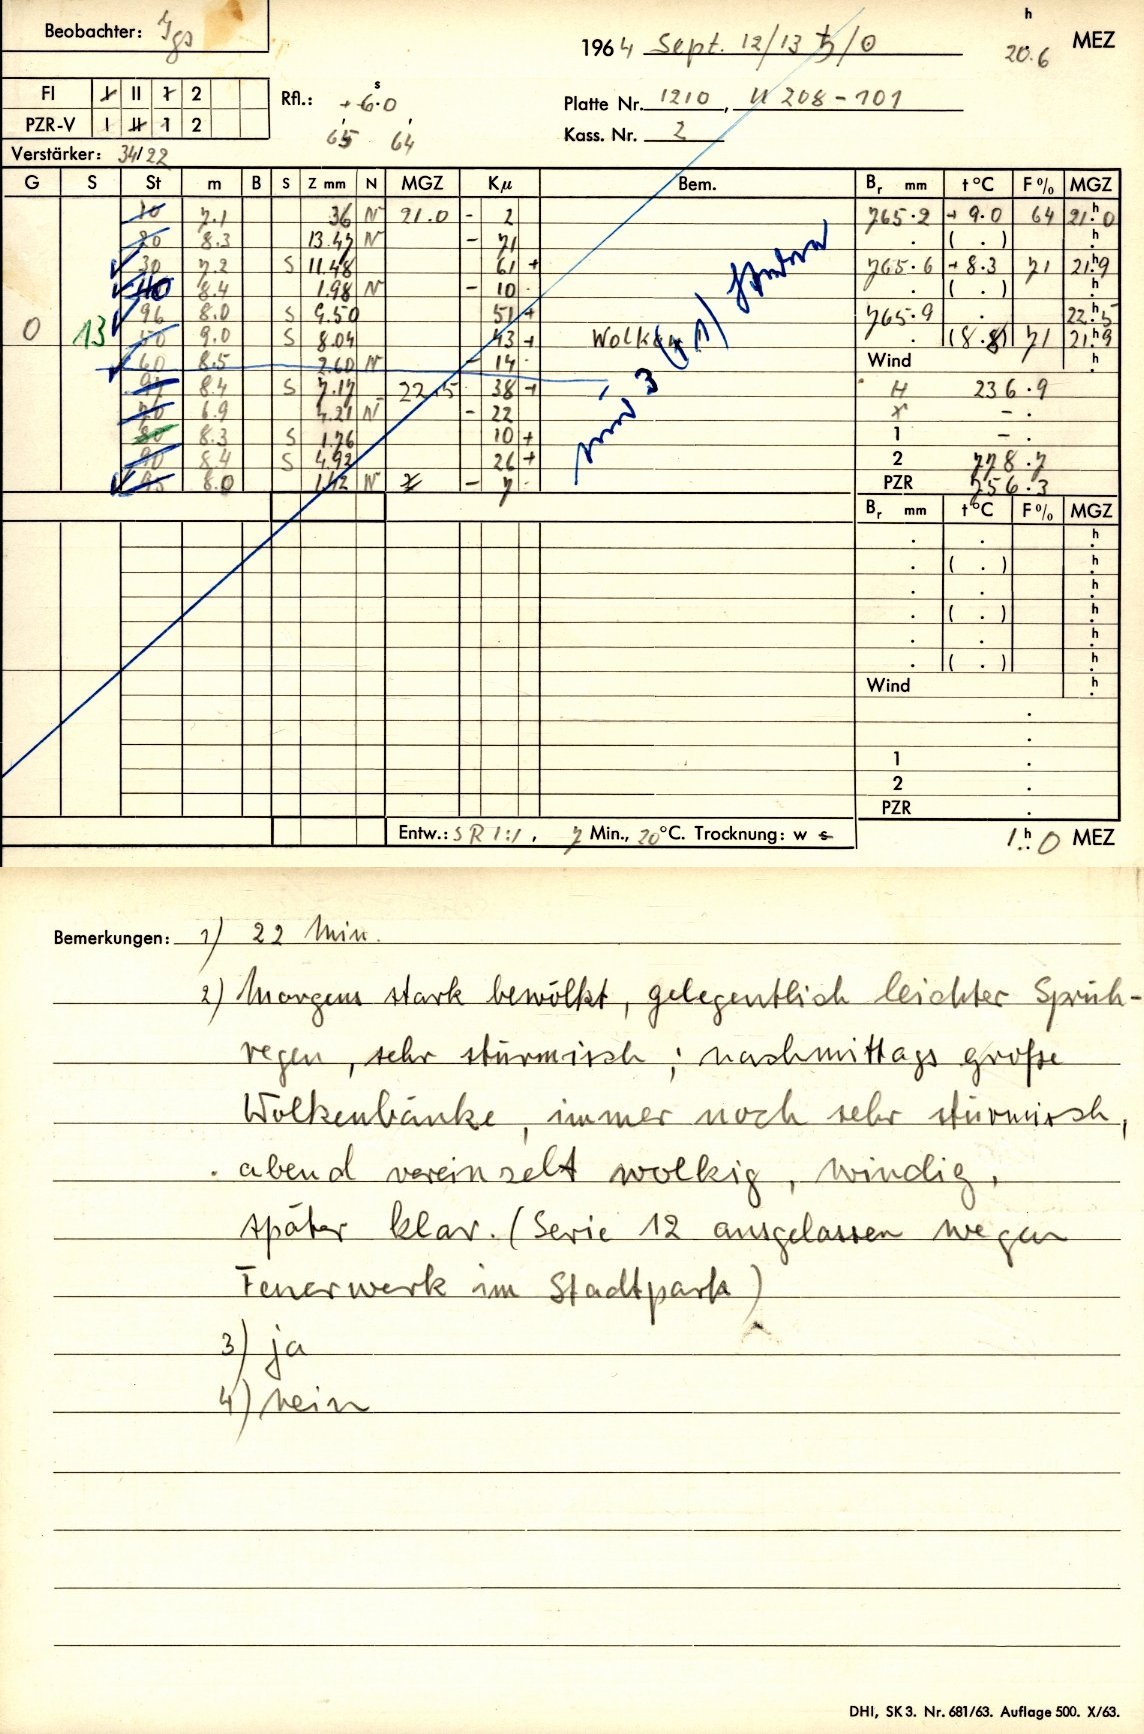 Beobachter: Jgs
1964 Sept. 12/13 ♄/☉ 20.6 h MEZ
FI I II 1 2
PZR-V I II 1 2
Rfl.: +6.0 s
65 64
Platte Nr. 1210, U 208-101
Kass. Nr. 2
Verstärker: 34/22
G S St m B S Z mm N MGZ Kμ Bem. Br mm t°C F% MGZ
10 7.1 36 N 21.0 - 2 765.2 +9.0 64 21.0 h
20 8.3 13.47 N - 71 . ( . ) h
30 7.2 S 11.48 61 + 765.6 +8.3 71 21.9 h
40 8.4 1.98 N - 10 . ( . ) h
96 8.0 S 9.50 51 + 765.9 . 22.5 h
0 13 50 9.0 S 8.04 43 + Wolken . (8.8) 71 21.9 h
60 8.5 2.60 N - 14 Wind h
97 8.4 S 7.17 22.5 38 + H 236.9
70 6.9 4.21 N - 22 - .
80 8.3 S 1.76 10 + 1 - .
90 8.4 S 4.92 26 + 2 778.7
95 8.0 1.42 N - 7 PZR 756.3
nur 3 (+1)
Br mm t°C F% MGZ
. . h
. ( . ) h
. . h
. ( . ) h
. . h
. ( . ) h
Wind h
.
.
1 .
2 .
PZR .
Entw.: SR 1:1, 7 Min., 20°C. Trocknung: w s
1.0 h MEZ
Bemerkungen: 1) 22 Min.
2) Morgens stark bewölkt, gelegentlich leichter Sprüh-
regen, sehr stürmisch; nachmittags große
Wolkenbänke, immer noch sehr stürmisch,
abend vereinzelt wolkig, windig,
später klar. (Serie 12 ausgelassen wegen
Feuerwerk im Stadtpark)
3) ja
4) nein
DHI, SK 3. Nr. 681/63. Auflage 500. X/63.